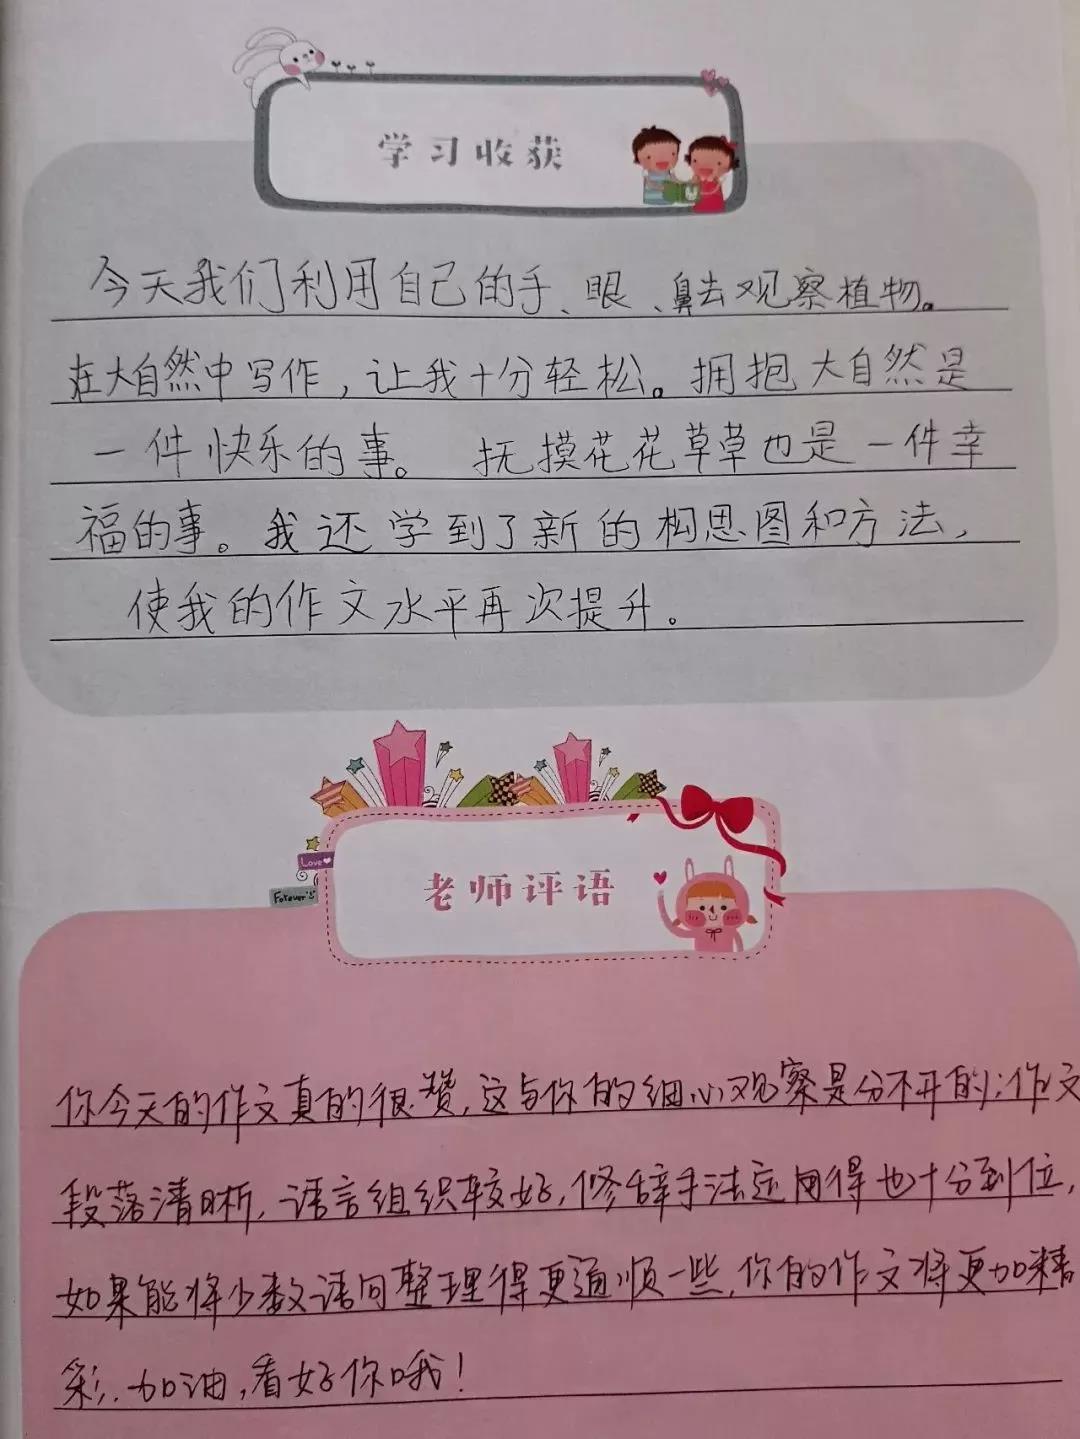 学习收获
今天我们利用自己的手、眼、鼻去观察植物。
在大自然中写作，让我十分轻松。拥抱大自然是
一件快乐的事。抚摸花花草草也是一件幸
福的事。我还学到了新的构思图和方法，
使我的作文水平再次提升。
Love
Forever's
老师评语
你今天的作文真的很赞，这与你的细心观察是分不开的；作文
段落清晰，语言组织较好，修辞手法运用得也十分到位，
如果能将少数语句整理得更通顺一些，你的作文将更加精
彩.加油，看好你哦！